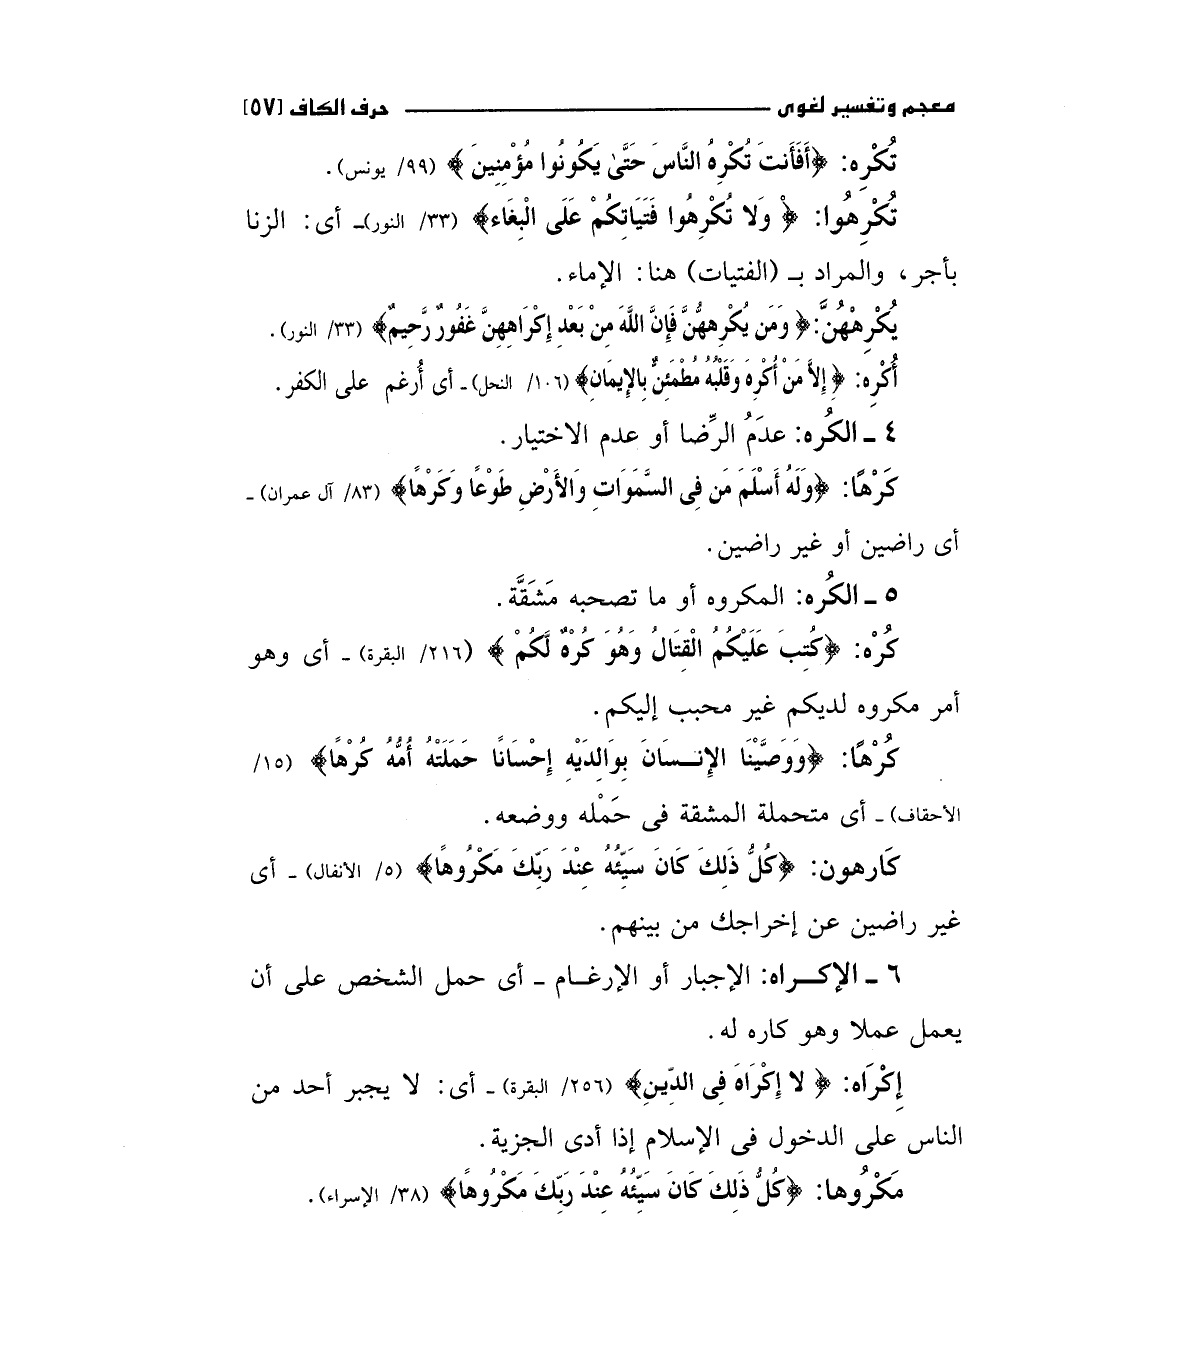 معجم وتفسير لغوى حرف الكاف [٥٧]
تُكْرِه: ﴿أَفَأَنتَ تُكْرِهُ النَّاسَ حَتَّىٰ يَكُونُوا مُؤْمِنِينَ﴾ (٩٩/ يونس).
تُكْرِهُوا: ﴿ وَلا تُكْرِهُوا فَتَيَاتِكُمْ عَلَى الْبِغَاءِ﴾ (٣٣/ النور)ـ أى: الزنا
بأجر، والمراد بـ (الفتيات) هنا: الإماء.
يُكْرِهْهُنَّ:﴿ وَمَن يُكْرِههُّنَّ فَإِنَّ اللَّهَ مِنْ بَعْدِ إِكْرَاهِهِنَّ غَفُورٌ رَّحِيمٌ﴾ (٣٣/ النور).
أُكْرِه: ﴿ إِلاَّ مَنْ أُكْرِهَ وَقَلْبُهُ مُطْمَئِنٌّ بِالإِيمَانِ﴾ (١٠٦/ النحل)ـ أى أُرغم على الكفر.
٤ ـ الكُره: عدَمُ الرِّضا أو عدم الاختيار.
كَرْهًا: ﴿وَلَهُ أَسْلَمَ مَن فِى السَّمَوَاتِ وَالأَرْضِ طَوْعًا وَكَرْهًا﴾ (٨٣/ آل عمران) ـ
أى راضين أو غير راضين.
٥ ـ الكُره: المكروه أو ما تصحبه مَشَقَّة.
كُرْه: ﴿كُتِبَ عَلَيْكُمُ الْقِتَالُ وَهُوَ كُرْهٌ لَّكُمْ ﴾ (٢١٦/ البقرة) ـ أى وهو
أمر مكروه لديكم غير محبب إليكم.
كُرْهًا: ﴿وَوَصَّيْنَا الإِنسَانَ بِوَالِدَيْهِ إِحْسَانًا حَمَلَتْهُ أُمُّهُ كُرْهًا﴾ (١٥/
الأحقاف) ـ أى متحملة المشقة فى حَمْله ووضعه.
كَارهون: ﴿كُلُّ ذَلِكَ كَانَ سَيِّئُهُ عِنْدَ رَبِّكَ مَكْرُوهًا﴾ (٥/ الأنفال) ـ أى
غير راضين عن إخراجك من بينهم.
٦ ـ الإكــراه: الإجبار أو الإرغـام ـ أى حمل الشخص على أن
يعمل عملا وهو كاره له.
إِكْرَاه: ﴿ لا إِكْرَاهَ فِى الدِّينِ﴾ (٢٥٦/ البقرة) ـ أى: لا يجبر أحد من
الناس على الدخول فى الإسلام إذا أدى الجزية.
مَكْرُوها: ﴿كُلُّ ذَلِكَ كَانَ سَيِّئُهُ عِنْدَ رَبِّكَ مَكْرُوهًا﴾ (٣٨/ الإسراء).